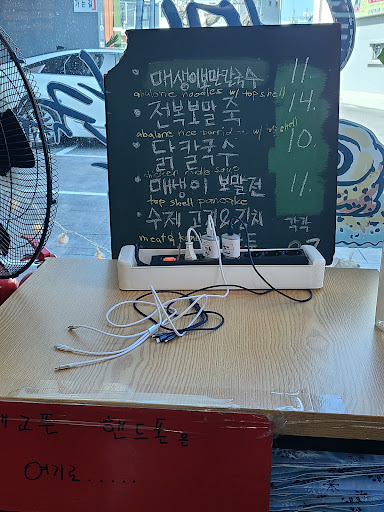 매생이보말칼국수 11.
abalone noodles w/ top shell
전복보말죽 14.
abalone rice porridge w/ top shell
닭칼국수 10.
chicken noodle soup
매생이 보말전 11.
top shell pancake
수제 고기&김치 각각
meat &
핸드폰을
여기로.....